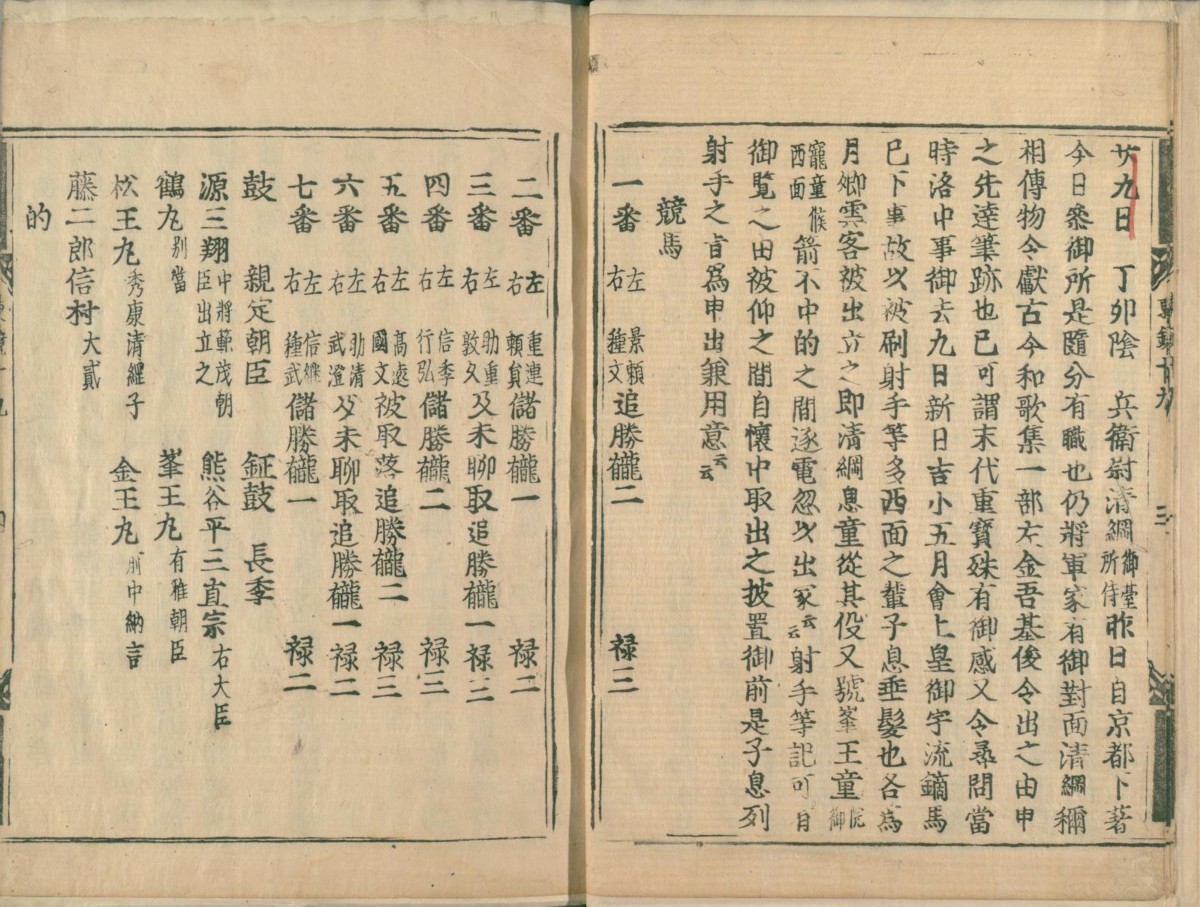 廿九日　丁卯陰　兵衛尉清綱御臺所侍昨日自京都下著
今日參御所是隨分有職也仍將軍家有御對面清綱稱
相傳物令獻古今和歌集一部左金吾基俊令出之由申
之先達筆跡也已可謂末代重寶殊有御感又令尋問當
時洛中事御去九日新日吉小五月會上皇御字流鏑馬
已下事故以被刷射手等多西面之輩子息垂髮也各爲
月卿雲客被出立之即清綱息童從其役又號峯王童御
寵童候西面箭不中的之間逐電忽以出家云云射手等記可有
御覽之由被仰之間自懷中取出之披置御前是子息列
射手之旨爲申出兼用意云云
競馬
一番　左　景頼　右　種文　追勝櫳二　禄三
二番　左　重連　右　頼負　儲勝櫳一　禄二
三番　左　助重　右　敦久　及未聊取追勝櫳一　禄三
四番　左　信季　右　行弘　儲勝櫳二　禄三
五番　左　高遠　右　國文　被取落追勝櫳二　禄三
六番　左　助清　右　武澄　及未聊取追勝櫳一　禄二
七番　左　信継　右　種武　儲勝櫳一　禄二
鼓　親定朝臣　鉦鼓　長季
源三翔中將範茂朝臣出立之　熊谷平三直宗右大臣
鶴丸別當　峯王丸有雅朝臣
松王丸秀康清繼子　金王丸前中納言
藤二郎信村大貳
的